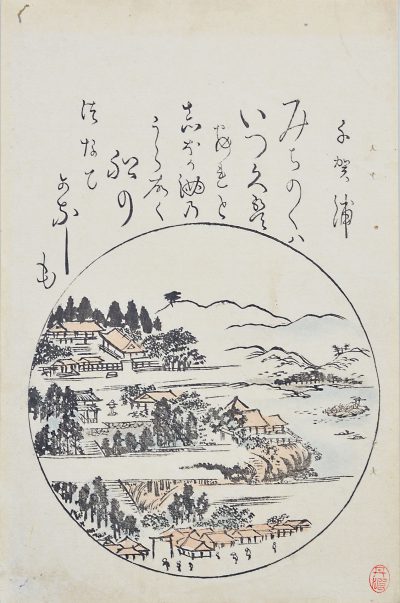 千賀浦
みちのくハ
いつくは
あれと
志ほかま乃
うらこく
船の
つなて
かなし
も